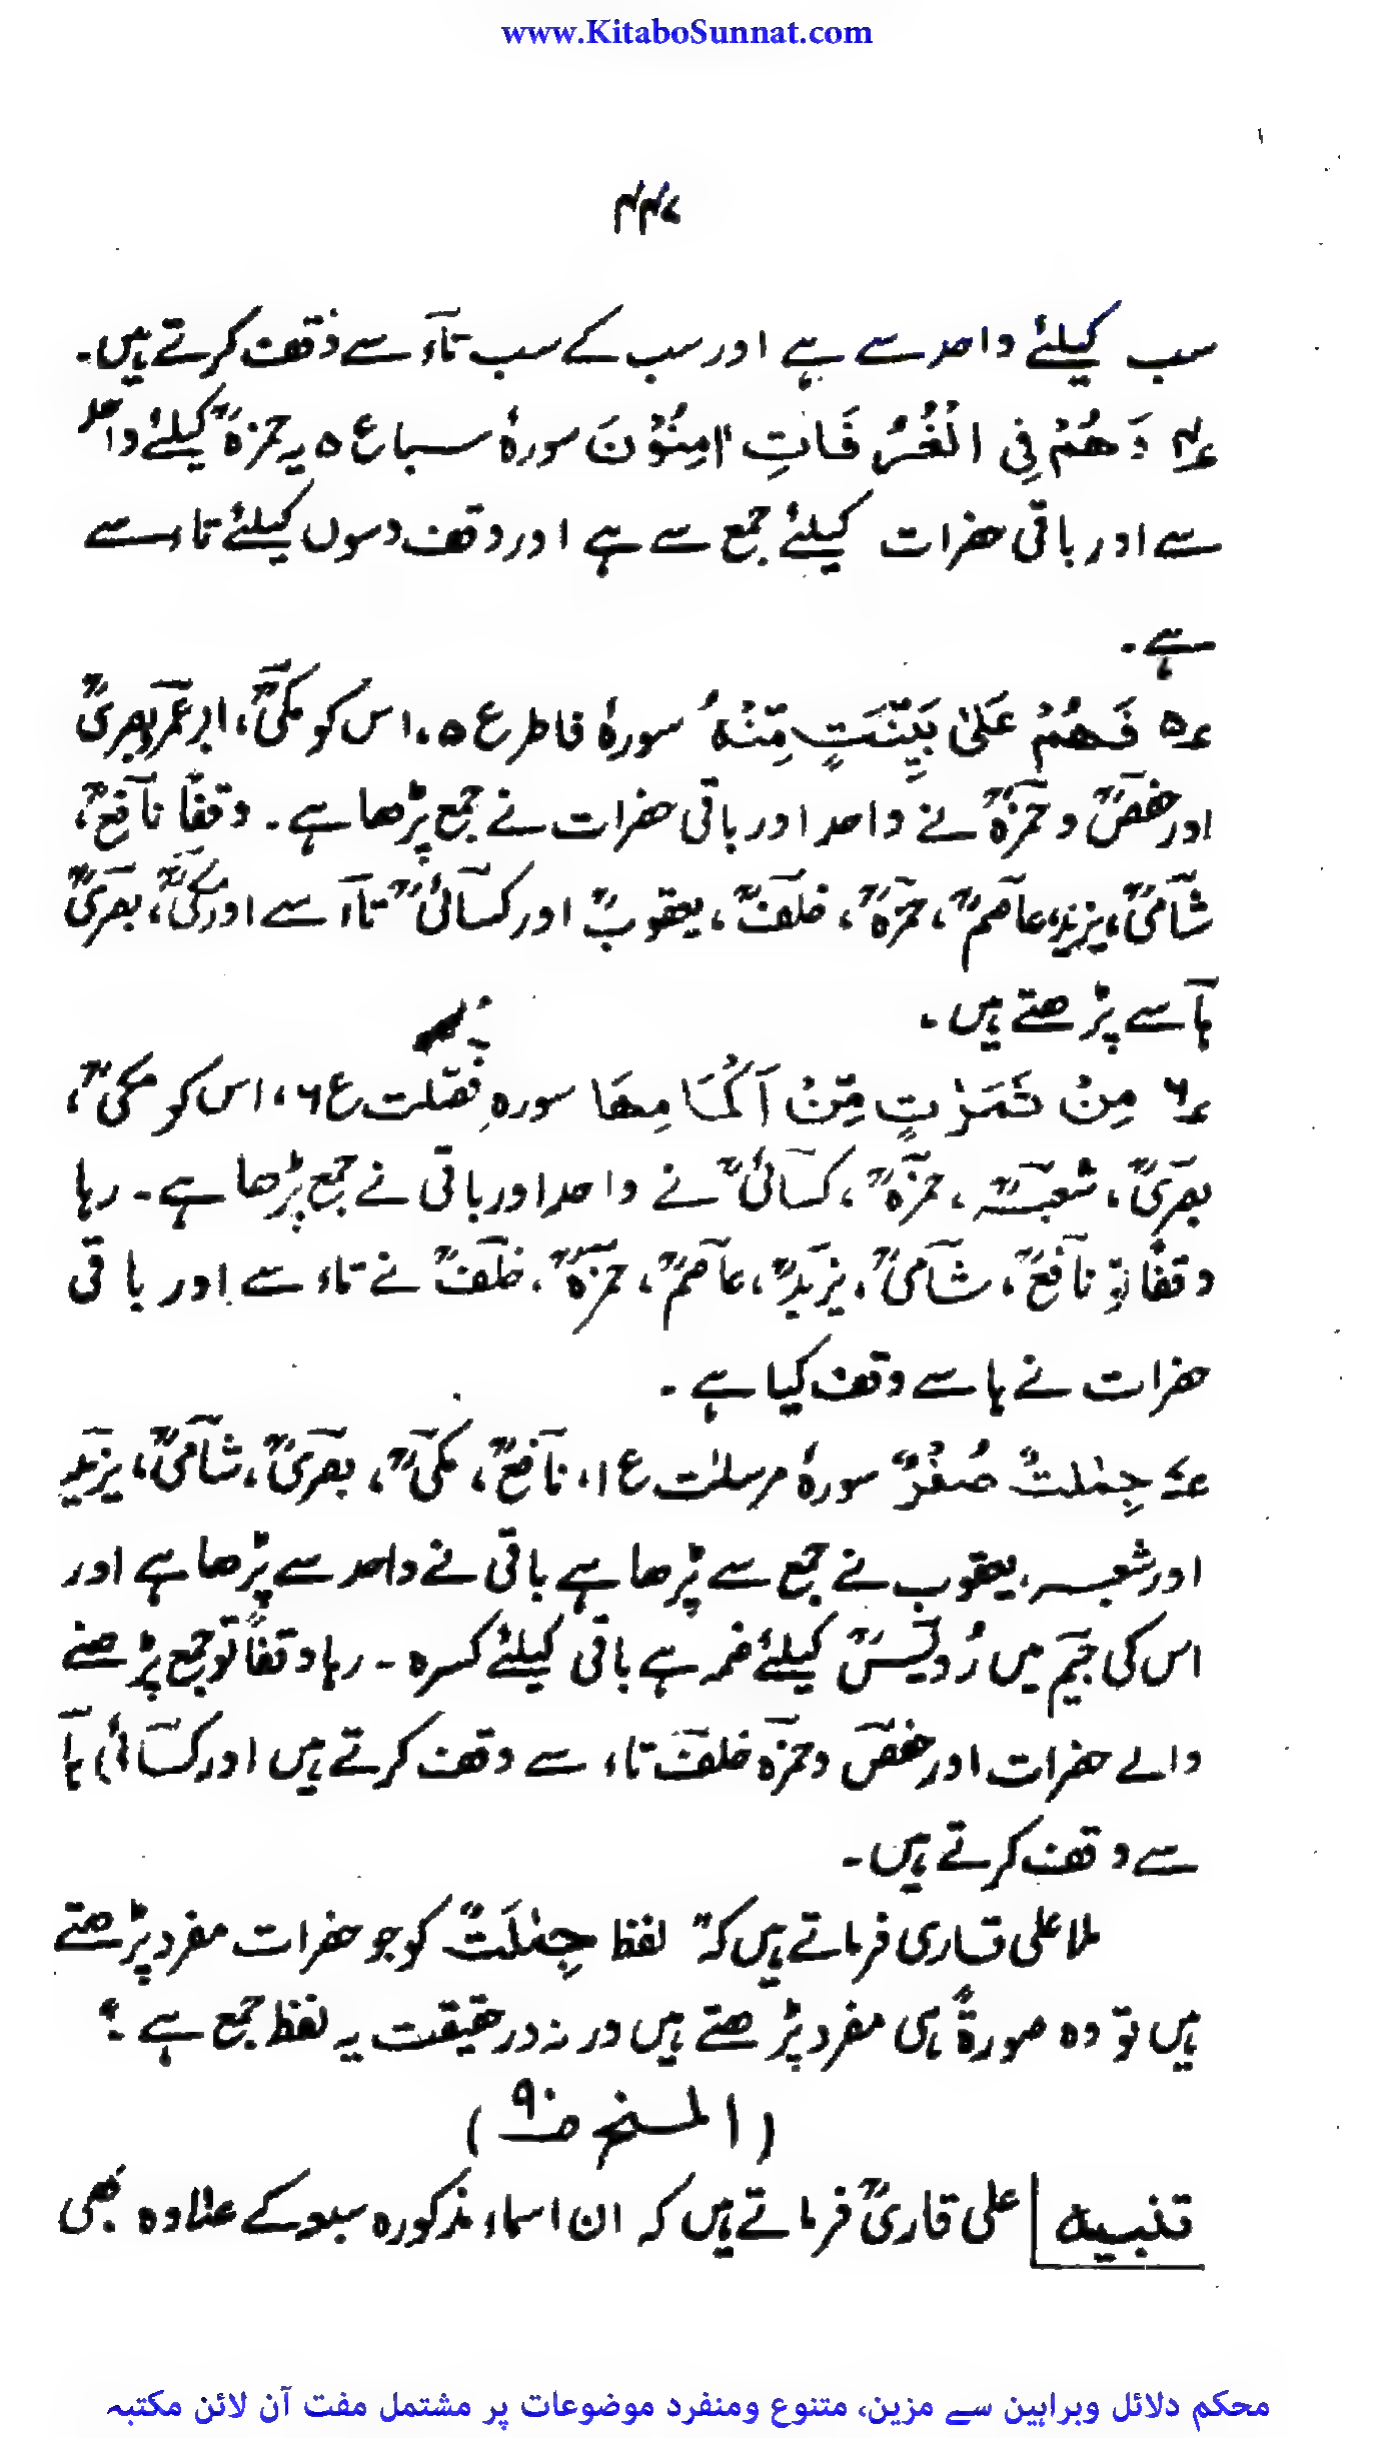 www.KitaboSunnat.com
۴۴۷
سب کیلئے واحد سے ہے اور سب کے سب تآء سے وقف کرتے ہیں۔
۴؎ وَهُمْ فِي الْغُرُفَاتِ اٰمِنُوْنَ سورۂ سبا ع ۵ یہ حمزہؒ کیلئے واحد
سے اور باقی حضرات کیلئے جمع سے ہے اور وقف دسوں کیلئے تاء سے
ہے۔
۵؎ فَهُمْ عَلٰى بَيِّنَتٍ مِّنْهُ سورۂ فاطر ع ۵، اس کو مکیؒ، ابو عمرو بصریؒ
اور حفصؒ و حمزہؒ نے واحد اور باقی حضرات نے جمع پڑھا ہے۔ وقفاً نافعؒ،
شامیؒ، یزیدؒ، عاصمؒ، حمزہؒ، خلفؒ، یعقوبؒ اور کسائیؒ تآء سے اور مکیؒ، بصریؒ
ہآ سے پڑھتے ہیں۔
۶؎ مِنْ ثَمَرٰتٍ مِّنْ اَكْمَامِهَا سورہ فصّلت ع ۶، اس کو مکیؒ،
بصریؒ، شعبہؒ، حمزہؒ، کسائیؒ نے واحد اور باقی نے جمع پڑھا ہے۔ رہا
وقفاً تو نافعؒ، شامیؒ، یزیدؒ، عاصمؒ، حمزہؒ، خلفؒ نے تاء سے اور باقی
حضرات نے ہا سے وقف کیا ہے۔
۷؎ جِمٰلتٌ صُفْرٌ سورۂ مرسلٰت ع ۱، نافعؒ، مکیؒ، بصریؒ، شامیؒ، یزید
اور شعبہ، یعقوب نے جمع سے پڑھا ہے باقی نے واحد سے پڑھا ہے اور
اس کی جیم میں رُویسؒ کیلئے ضمہ ہے باقی کیلئے کسرہ۔ رہا وقفاً تو جمع پڑھنے
والے حضرات اور حفص و حمزہ خلف تاء سے وقف کرتے ہیں اور کسائی ہآ
سے وقف کرتے ہیں۔
ملا علی قاری فرماتے ہیں کہ " لفظ جِمٰلَتٌ کو جو حضرات مفرد پڑھتے
ہیں تو وہ صورۃً ہی مفرد پڑھتے ہیں ورنہ درحقیقت یہ لفظ جمع ہے ۔"
(المنح ص ۹۰)
تنبیہ | علی قاریؒ فرماتے ہیں کہ ان اسماء مذکورہ سبعہ کے علاوہ بھی
محکم دلائل وبراہین سے مزین، متنوع ومنفرد موضوعات پر مشتمل مفت آن لائن مکتبہ